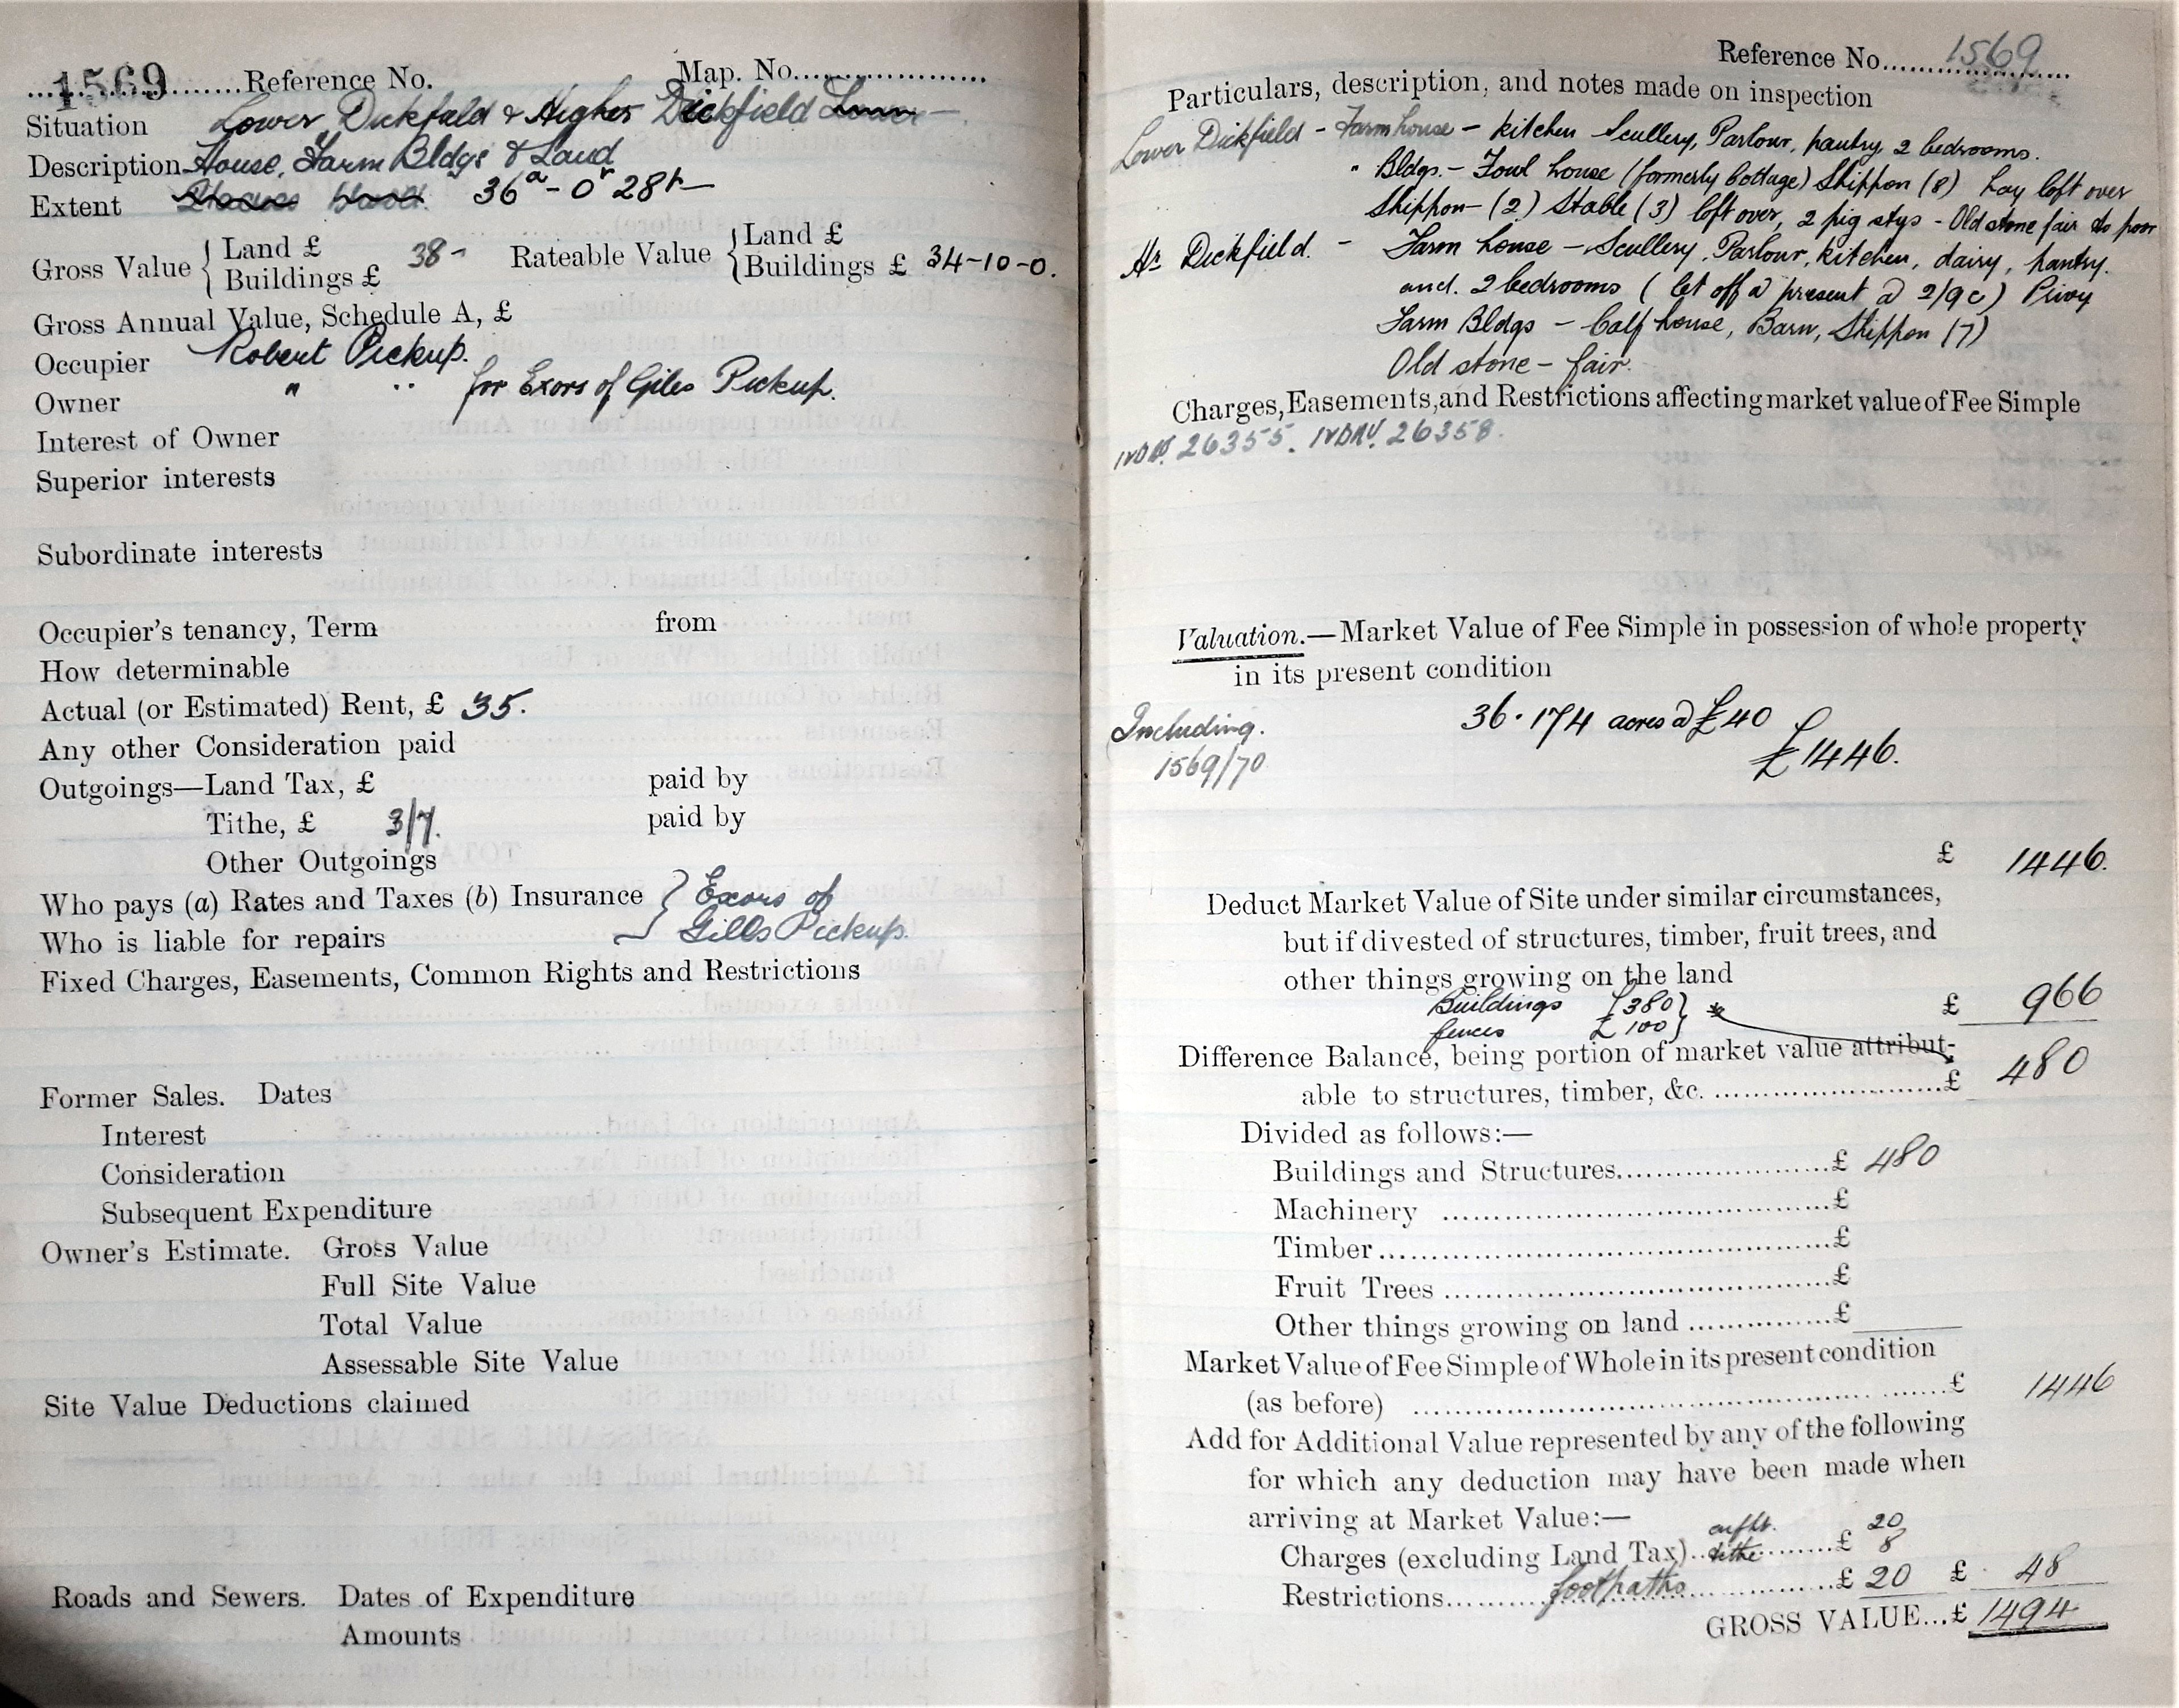 1569 Reference No. Map. No.
Situation Lower Dickfield & Higher Dickfield Lower
Description House, Farm Bldgs & Land
Extent 36a - 0r 28p
Gross Value { Land £ Buildings £ 38- Rateable Value { Land £ Buildings £ 34-10-0.
Gross Annual Value, Schedule A, £
Occupier Robert Pickup.
Owner " " for Exors of Giles Pickup.
Interest of Owner
Superior interests
Subordinate interests
Occupier's tenancy, Term from
How determinable
Actual (or Estimated) Rent, £ 35.
Any other Consideration paid
Outgoings—Land Tax, £ paid by
Tithe, £ 3/7. paid by
Other Outgoings
Who pays (a) Rates and Taxes (b) Insurance } Exors of
Who is liable for repairs Gills Pickup.
Fixed Charges, Easements, Common Rights and Restrictions
Former Sales. Dates
Interest
Consideration
Subsequent Expenditure
Owner's Estimate. Gross Value
Full Site Value
Total Value
Assessable Site Value
Site Value Deductions claimed
Roads and Sewers. Dates of Expenditure
Amounts
Reference No. 1569
Particulars, description, and notes made on inspection
Lower Dickfield - Farmhouse - kitchen Scullery, Parlour, pantry 2 bedrooms.
" Bldgs. - Fowl house (formerly Cottage) Shippon (8) hay loft over
Shippon - (2) Stable (3) loft over, 2 pig stys - Old stone fair to poor
Hr Dickfield. - Farm house - Scullery, Parlour, kitchen, dairy, pantry.
and. 2 bedrooms ( let off @ present @ 2/9 c) Privy
Farm Bldgs - Calf house, Barn, Shippon (7)
Old stone - fair.
Charges, Easements, and Restrictions affecting market value of Fee Simple
26355. 26358.
Valuation.—Market Value of Fee Simple in possession of whole property
in its present condition
Including. 36.174 acres @ £40
1569/70 £1446.
£ 1446.
Deduct Market Value of Site under similar circumstances,
but if divested of structures, timber, fruit trees, and
other things growing on the land
Buildings £380 } * £ 966
fences £100 }
Difference Balance, being portion of market value attribut-
able to structures, timber, &c. £ 480
Divided as follows:—
Buildings and Structures £ 480
Machinery £
Timber £
Fruit Trees £
Other things growing on land £
Market Value of Fee Simple of Whole in its present condition
(as before) £ 1446
Add for Additional Value represented by any of the following
for which any deduction may have been made when
arriving at Market Value:—
20
Charges (excluding Land Tax) tithe £ 8
Restrictions footpaths £ 20 £ 48
GROSS VALUE...£ 1494